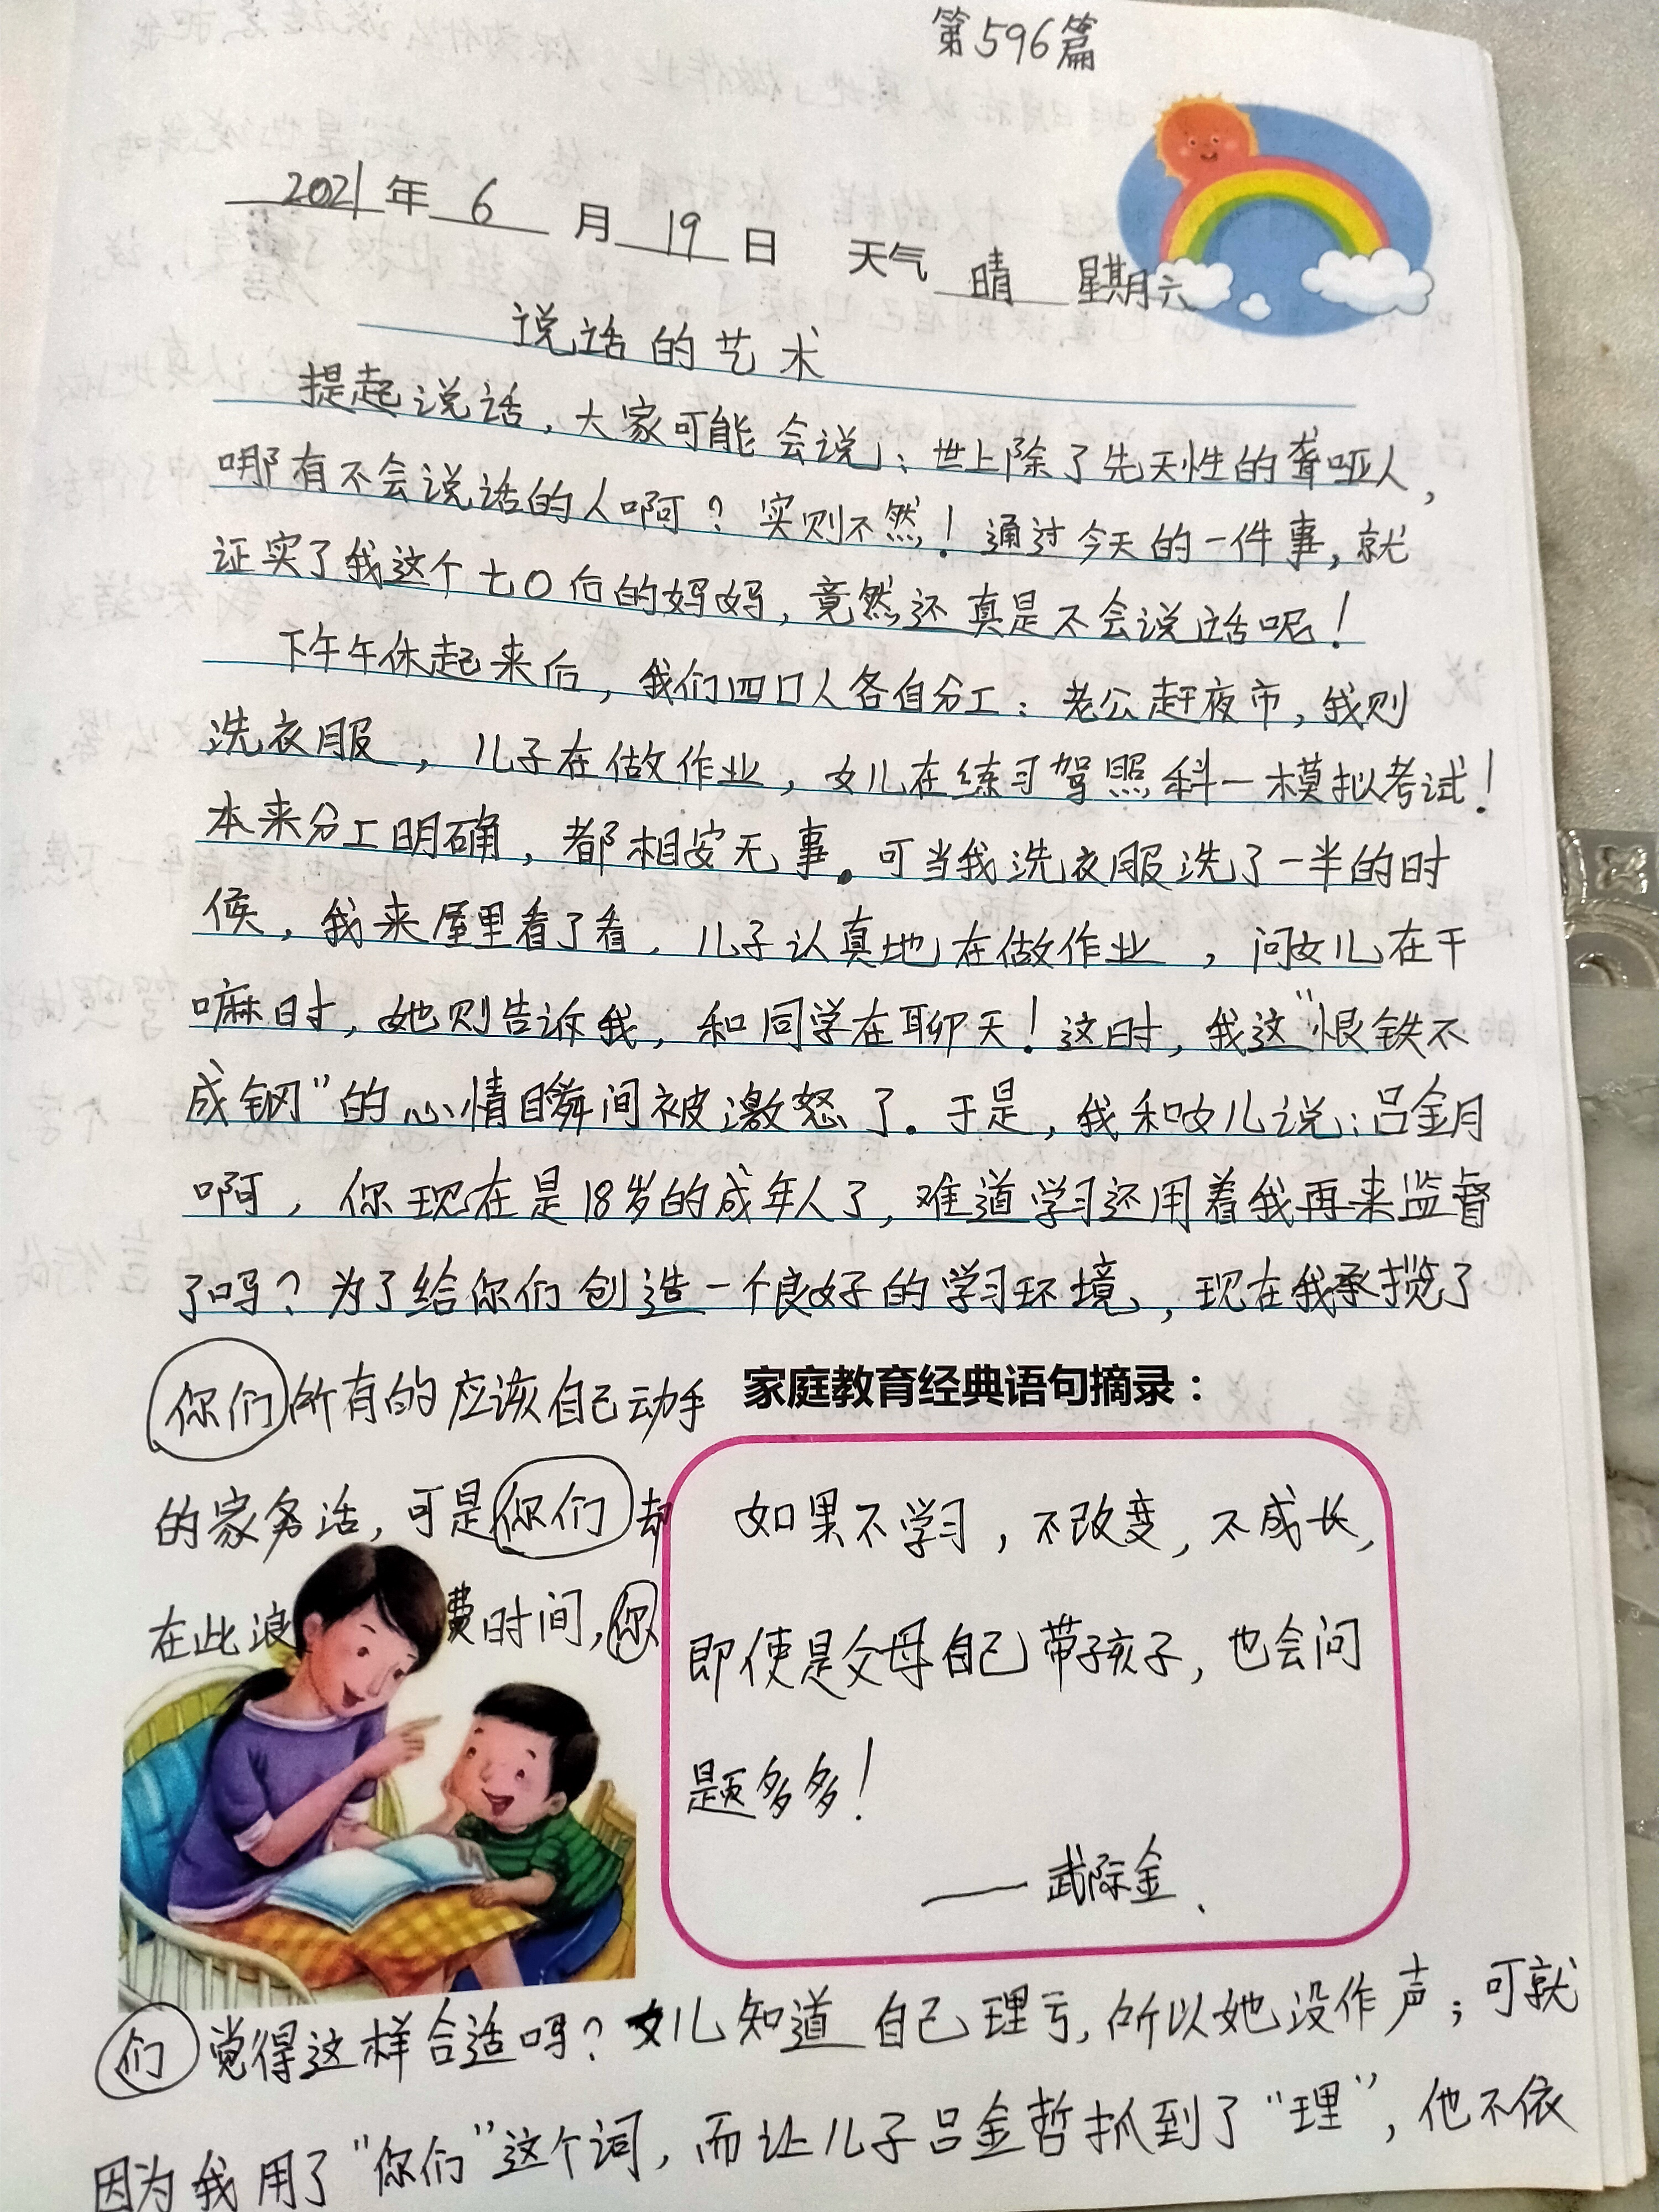 第596篇
2021年6月19日 天气 晴 星期六
说话的艺术
提起说话，大家可能会说：世上除了先天性的聋哑人，
哪有不会说话的人啊？实则不然！通过今天的一件事，就
证实了我这个七0后的妈妈，竟然还真是不会说话呢！
下午午休起来后，我们四口人各自分工：老公赶夜市，我则
洗衣服，儿子在做作业，女儿在练习驾照科一模拟考试！
本来分工明确，都相安无事。可当我洗衣服洗了一半的时
候，我来屋里看了看，儿子认真地在做作业，问女儿在干
嘛时，她则告诉我，和同学在聊天！这时，我这"恨铁不
成钢"的心情瞬间被激怒了。于是，我和女儿说：吕金月
啊，你现在是18岁的成年人了，难道学习还用着我再来监督
了吗？为了给你们创造一个良好的学习环境，现在我承揽了
你们所有的应该自己动手
的家务活，可是你们却
在此浪费时间，你
家庭教育经典语句摘录：
如果不学习，不改变，不成长，
即使是父母自己带孩子，也会问
题多多！
——武际金、
们觉得这样合适吗？女儿知道自己理亏，所以她没作声；可就
因为我用了"你们"这个词，而让儿子吕金哲抓到了"理"，他不依